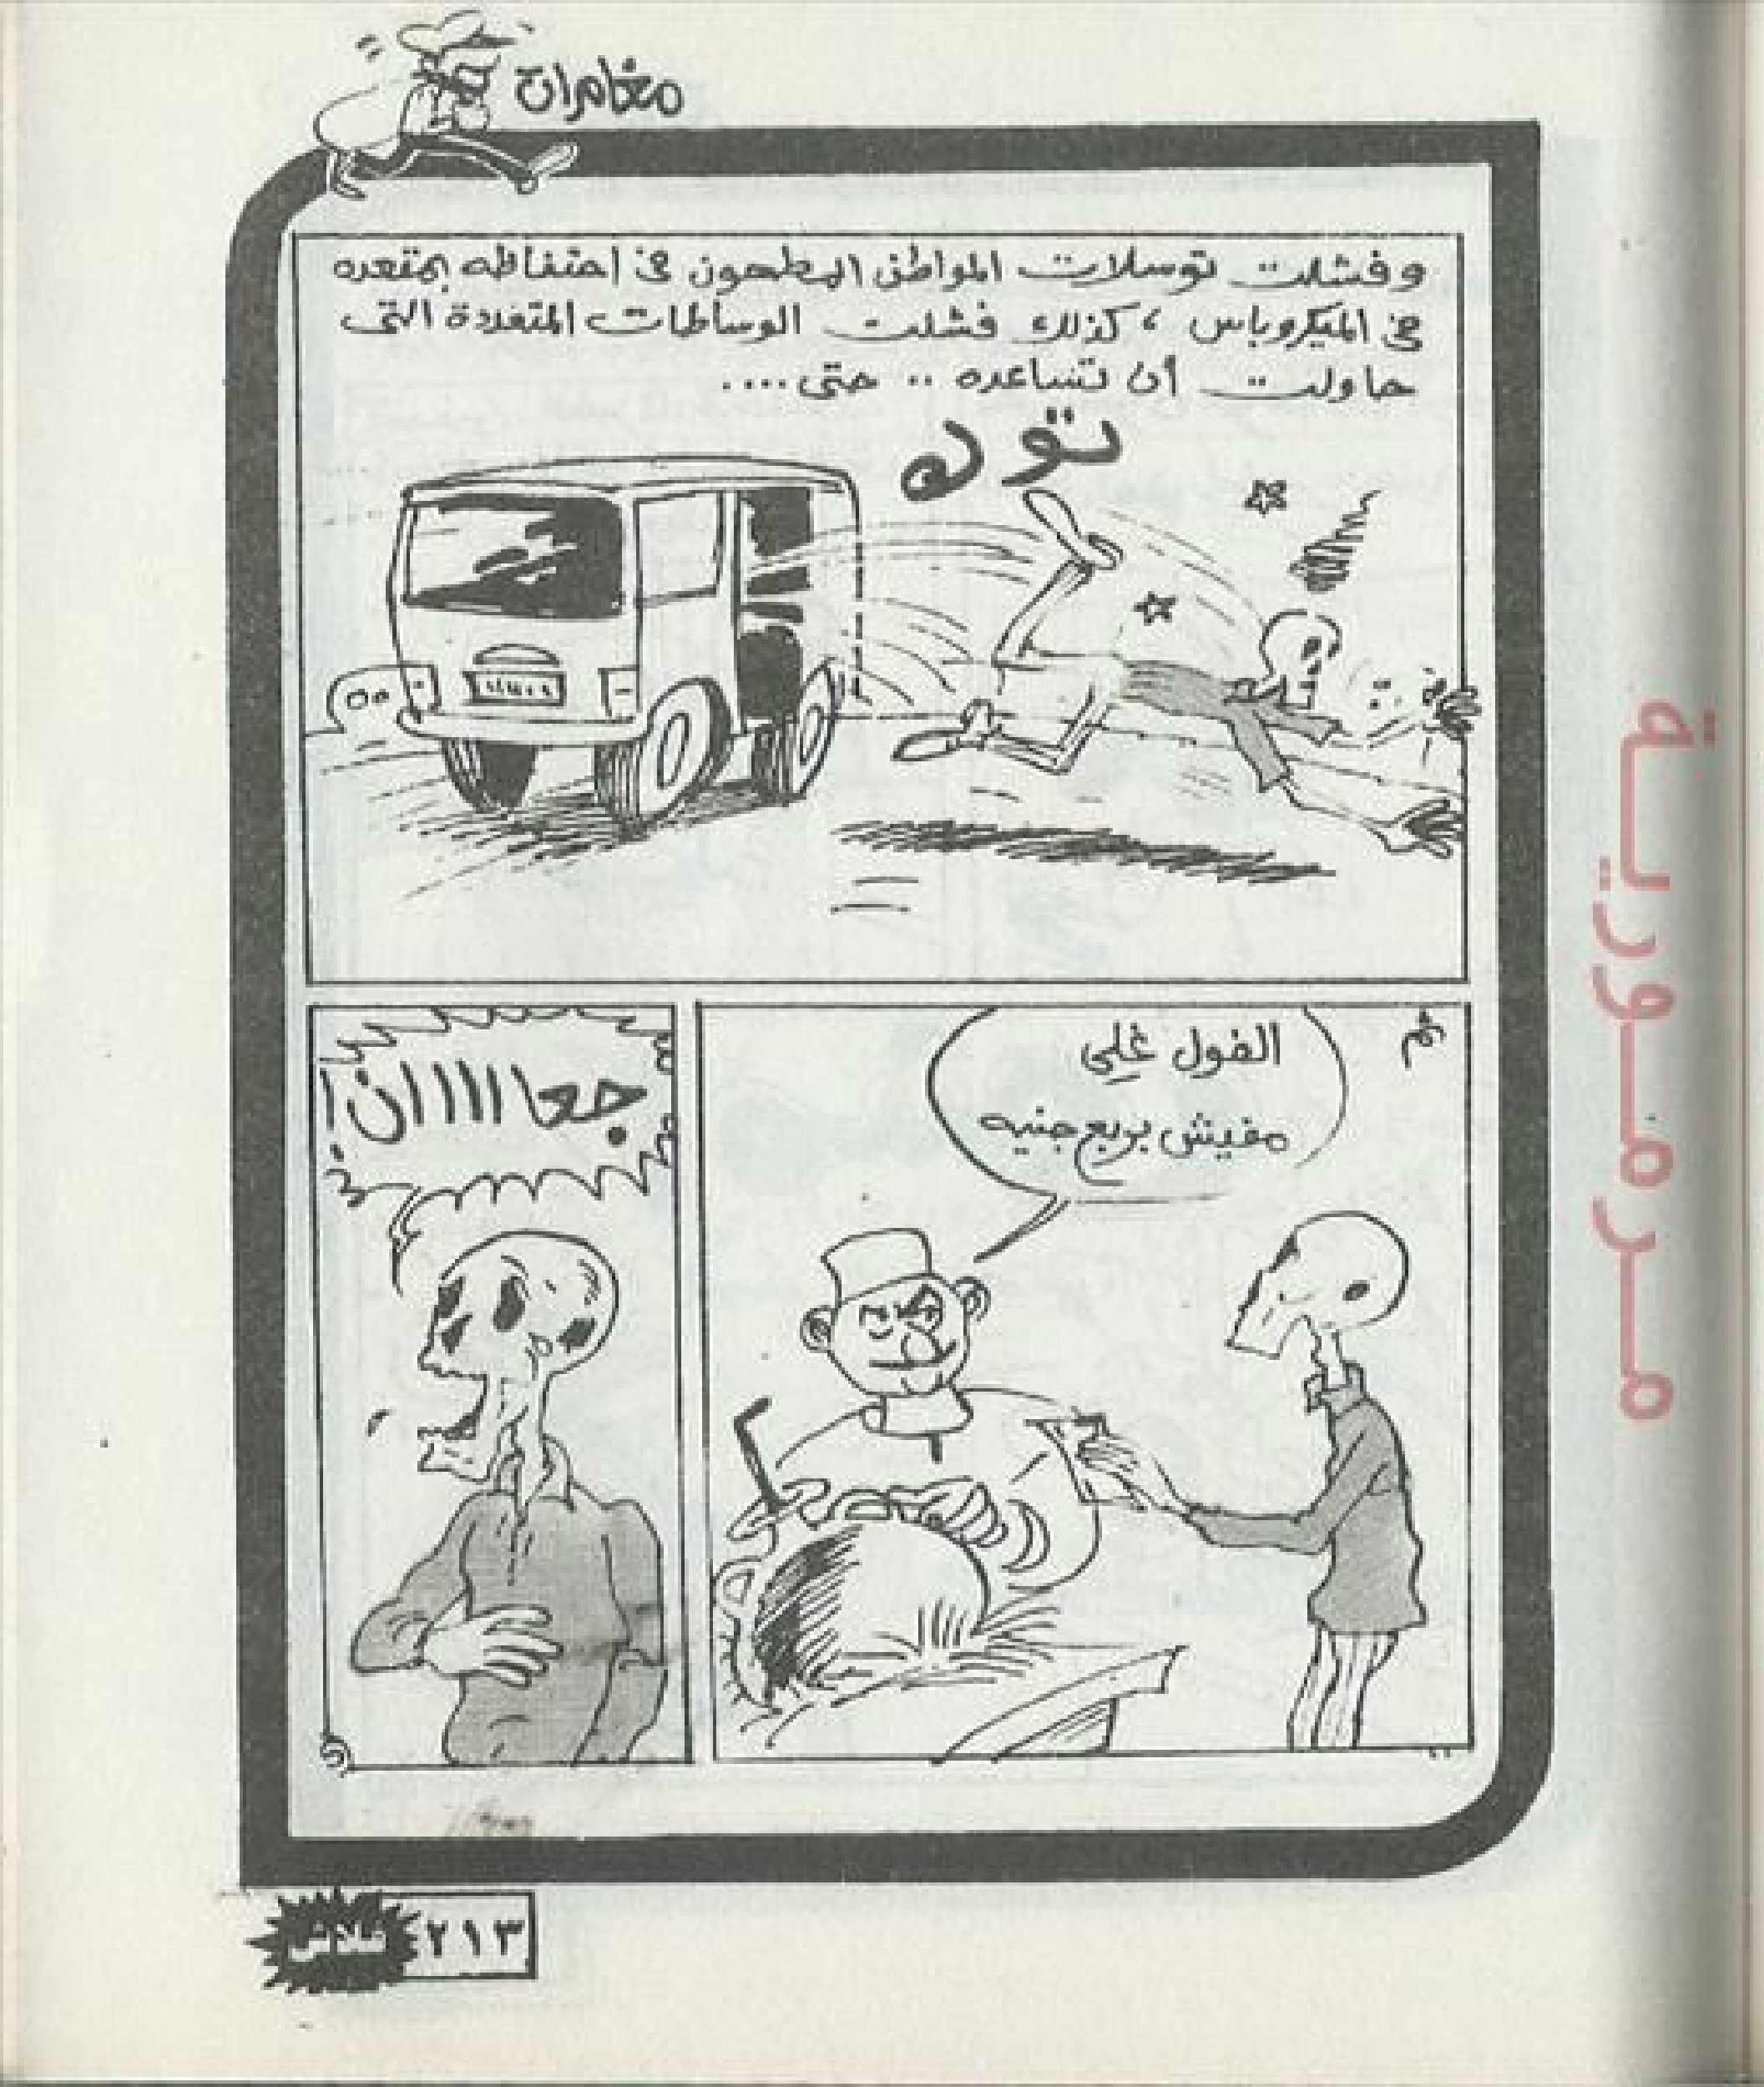 مغامرات
وفشلت توسلات المواطن المطحون فى احتفاظه بمقعده
فى الميكروباس ، كذلك فشلت الوساطات المتعددة التى
حاولت أن تساعده .. حتى ....
ثم
الفول غلي
مفيش بربع جنيه
جعااااان
٢١٣
فلاش
مرمورية